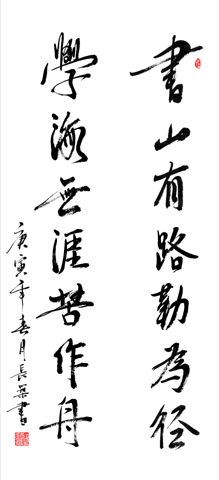 書山有路勤為徑
學海無涯苦作舟
庚寅年春月長榮書